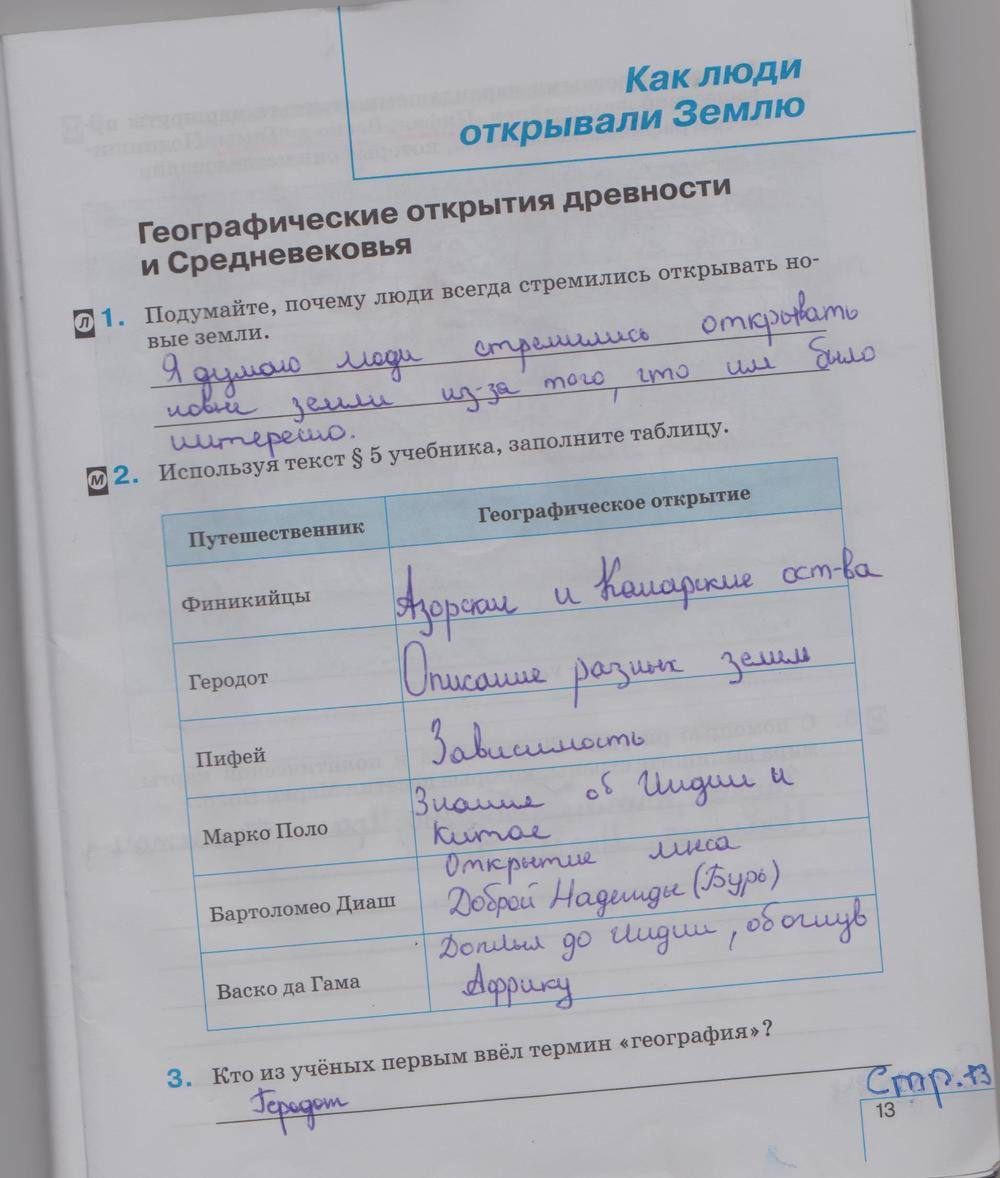 Как люди
открывали Землю
Географические открытия древности
и Средневековья
Л 1. Подумайте, почему люди всегда стремились открывать но-
вые земли.
Я думаю люди стремились открывать
новые земли из-за того, что им было
интересно.
М 2. Используя текст § 5 учебника, заполните таблицу.
Путешественник Географическое открытие
Финикийцы Азорские и Канарские ост-ва
Геродот Описание разных земель
Пифей Зависимость
Марко Поло Знания об Индии и
Китае
Бартоломео Диаш Открытие мыса
Доброй Надежды (Бурь)
Васко да Гама Доплыл до Индии, обогнув
Африку
3. Кто из учёных первым ввёл термин «география»?
Геродот
Стр. 13
13